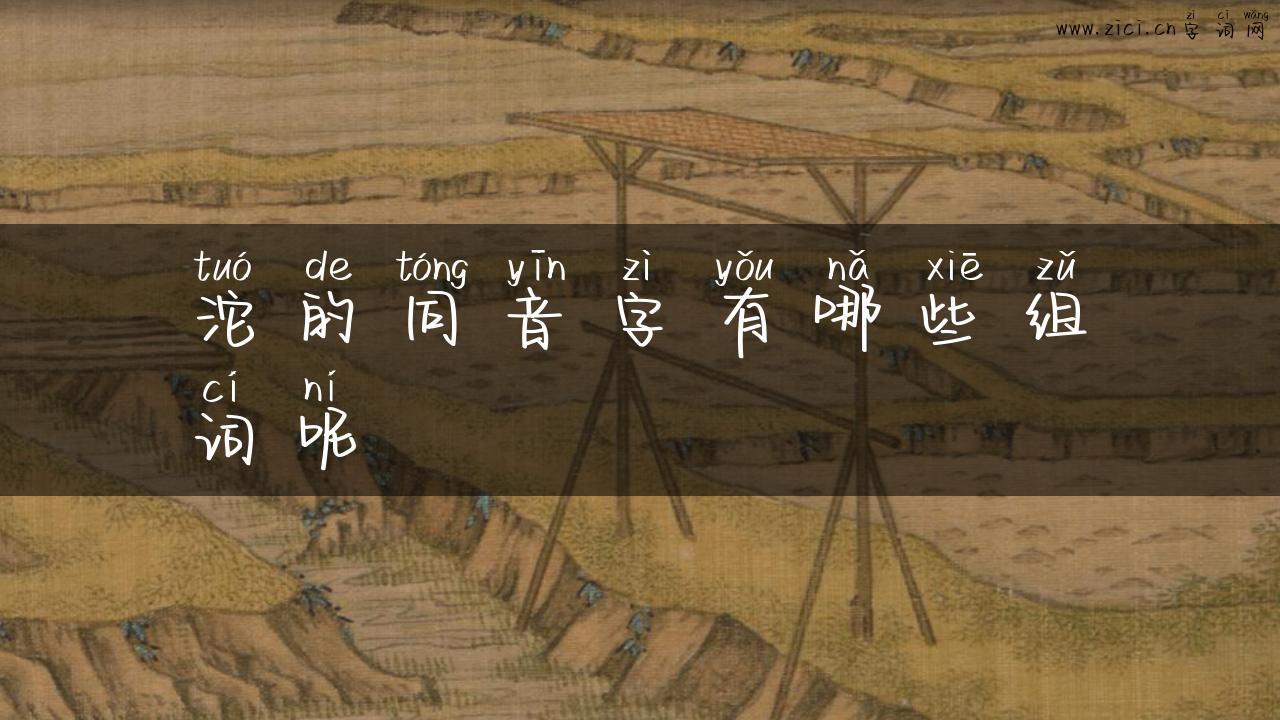 zì cí wǎng
www.zici.cn 字词网
tuó de tóng yīn zì yǒu nǎ xiē zǔ
沱的同音字有哪些组
cí ní
词呢